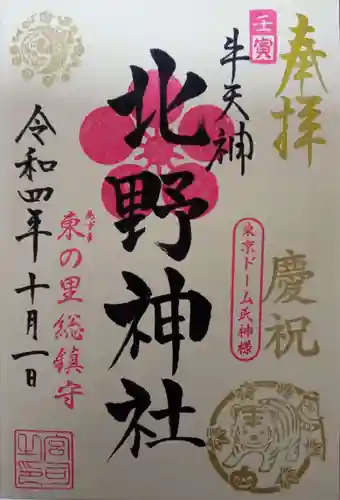 奉拝
慶祝
壬寅
牛天神
東京ドーム氏神様
北野神社
東の里総鎮守
あずま
令和四年十月一日